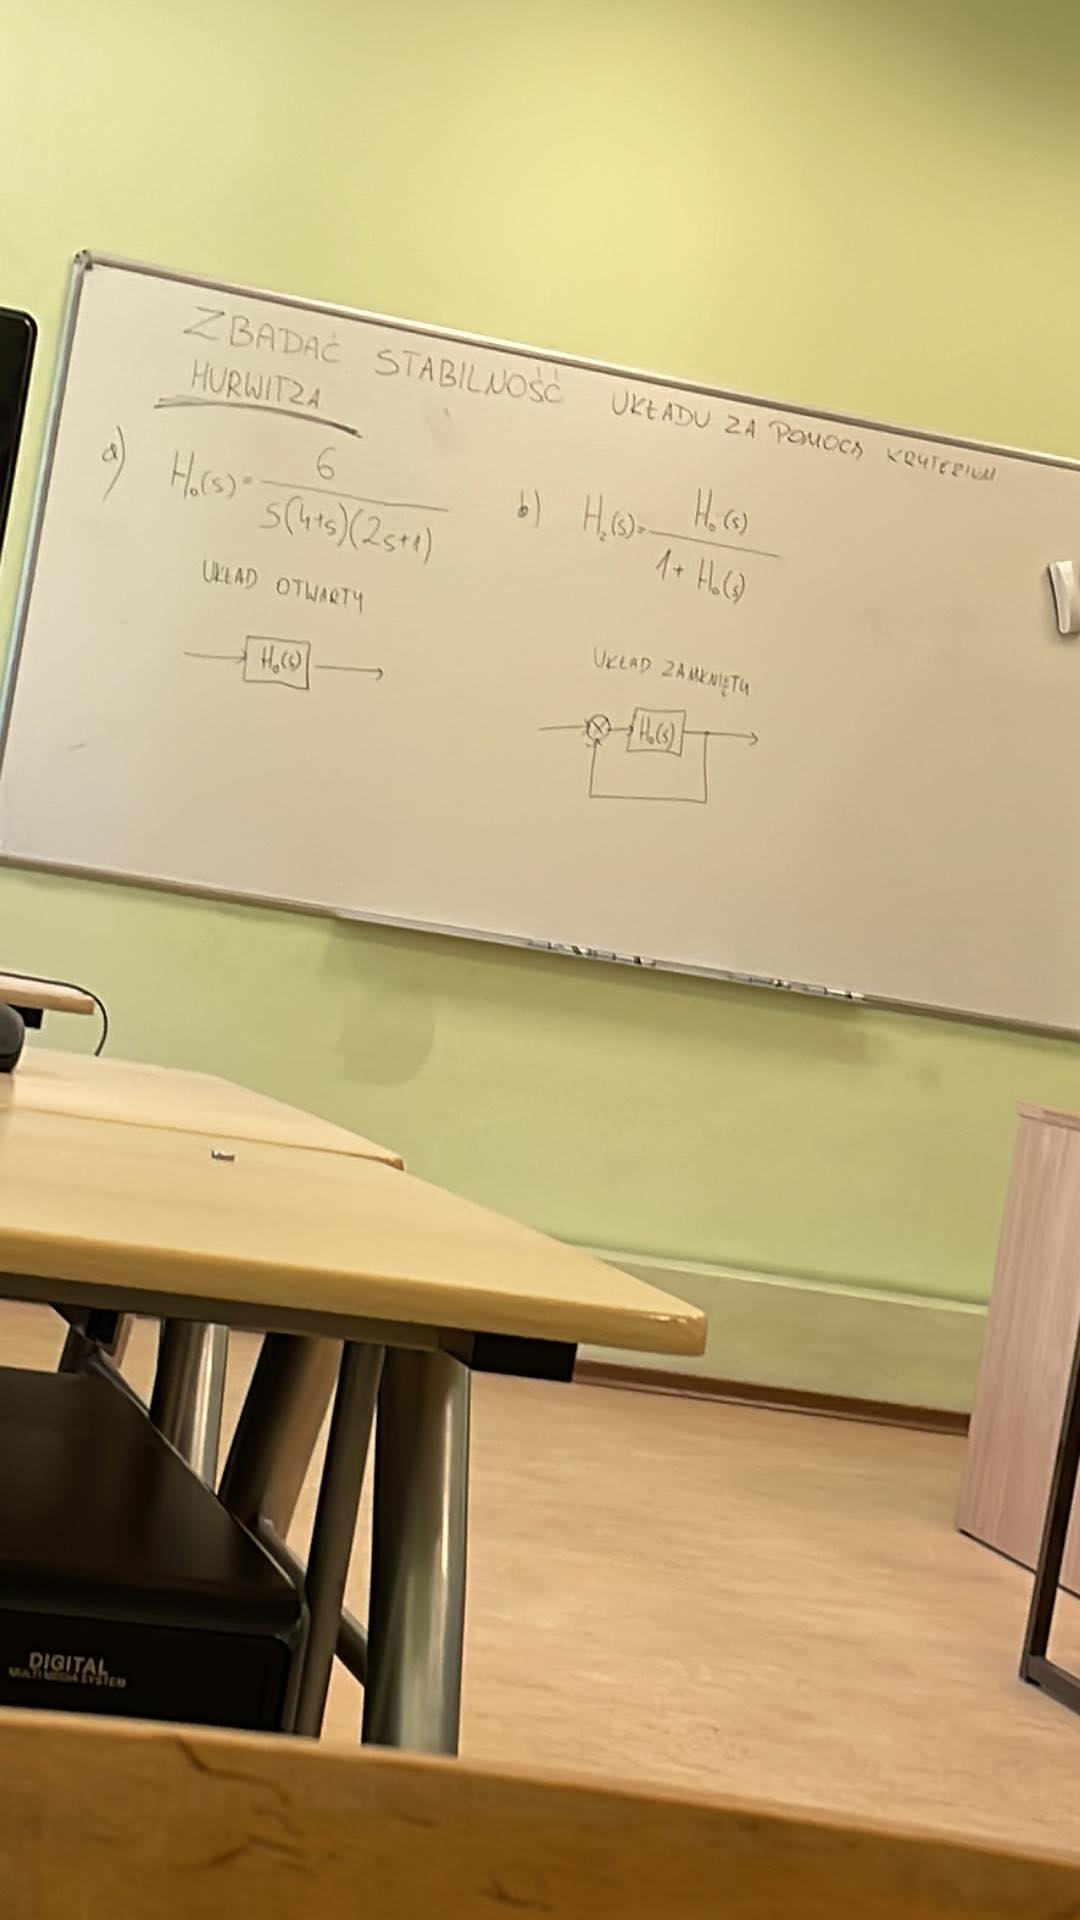 ZBADAĆ STABILNOŚĆ UKŁADU ZA POMOCĄ KRYTERIUM
HURWITZA
a) H₀(s) = 6 / s(4+s)(2s+1)
UKŁAD OTWARTY
H₀(s)
b) H_z(s) = H₀(s) / 1 + H₀(s)
UKŁAD ZAMKNIĘTY
H₀(s)
DIGITAL
MULTI MEDIA SYSTEM